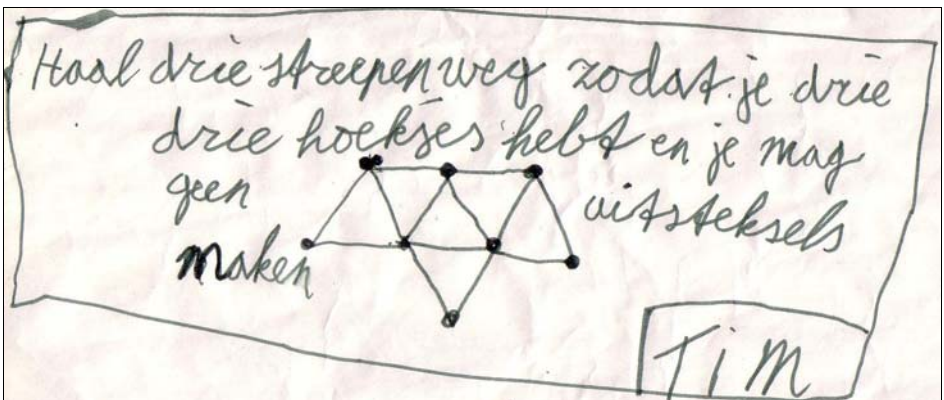 Haal drie streepen weg zodat je drie
drie hoekses hebt en je mag
geen uitsteksels
maken
Tim